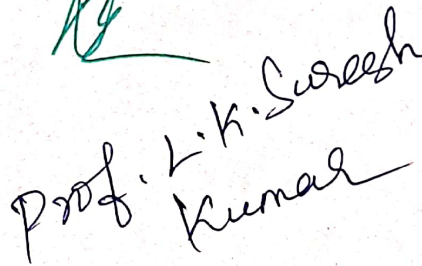 Prof. L.K. Suresh
Kumar